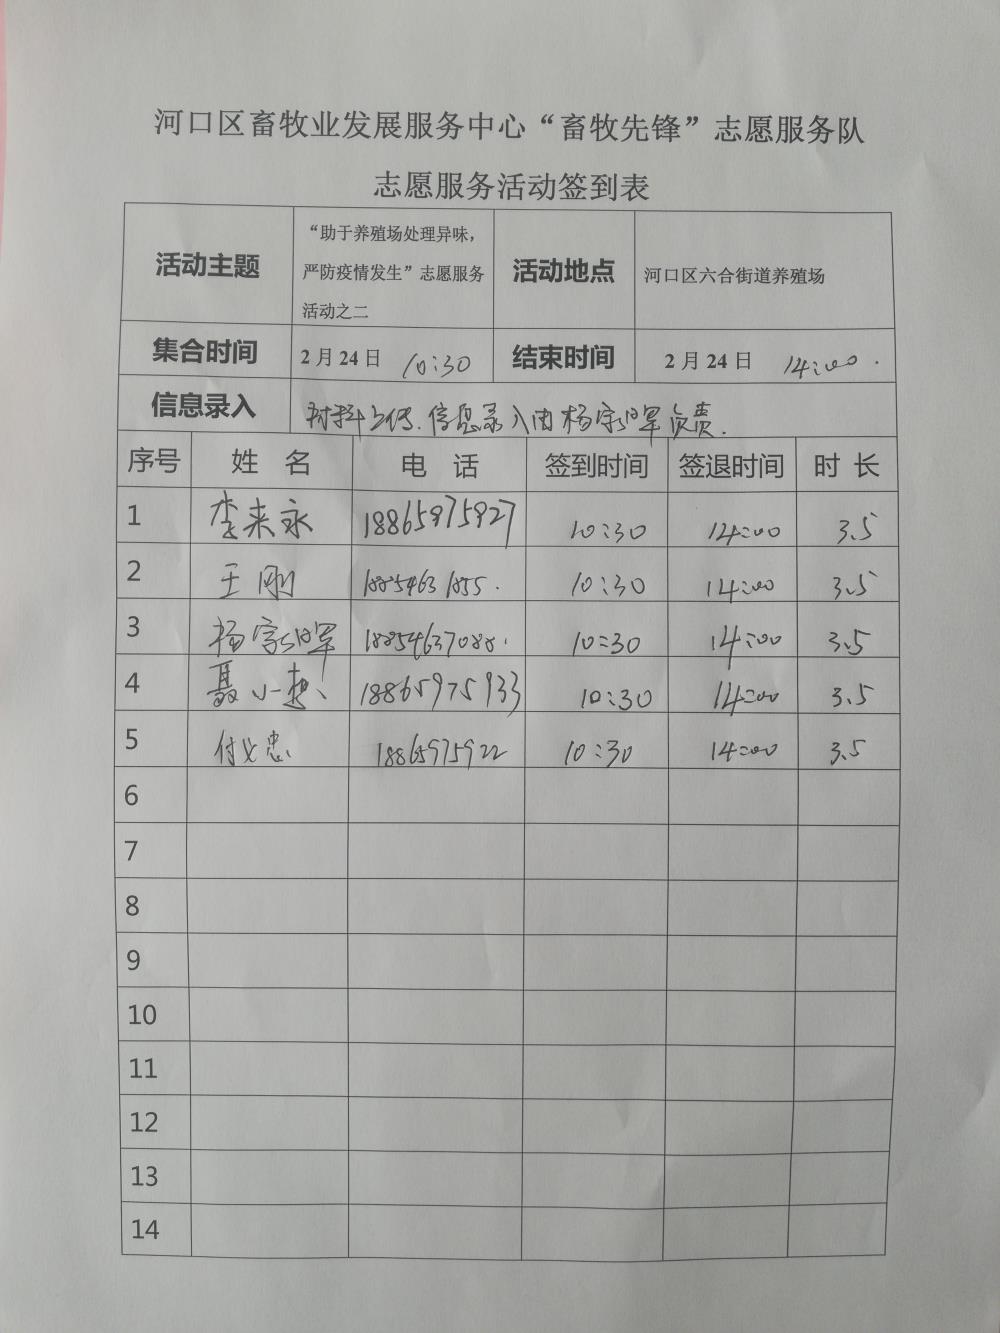 河口区畜牧业发展服务中心“畜牧先锋”志愿服务队
志愿服务活动签到表
活动主题 “助于养殖场处理异味，严防疫情发生”志愿服务活动之二 活动地点 河口区六合街道养殖场
集合时间 2月24日 10:30 结束时间 2月24日 14:00.
信息录入 材料上传.信息录入由杨 负责.
序号 姓 名 电 话 签到时间 签退时间 时 长
1 李来永 18865975927 10:30 14:00 3.5
2 王刚 10:30 14:00 3.5
3 杨 18854637088. 10:30 14:00 3.5
4 聂小 18865975933 10:30 14:00 3.5
5 付 忠 18865975922 10:30 14:00 3.5
6
7
8
9
10
11
12
13
14